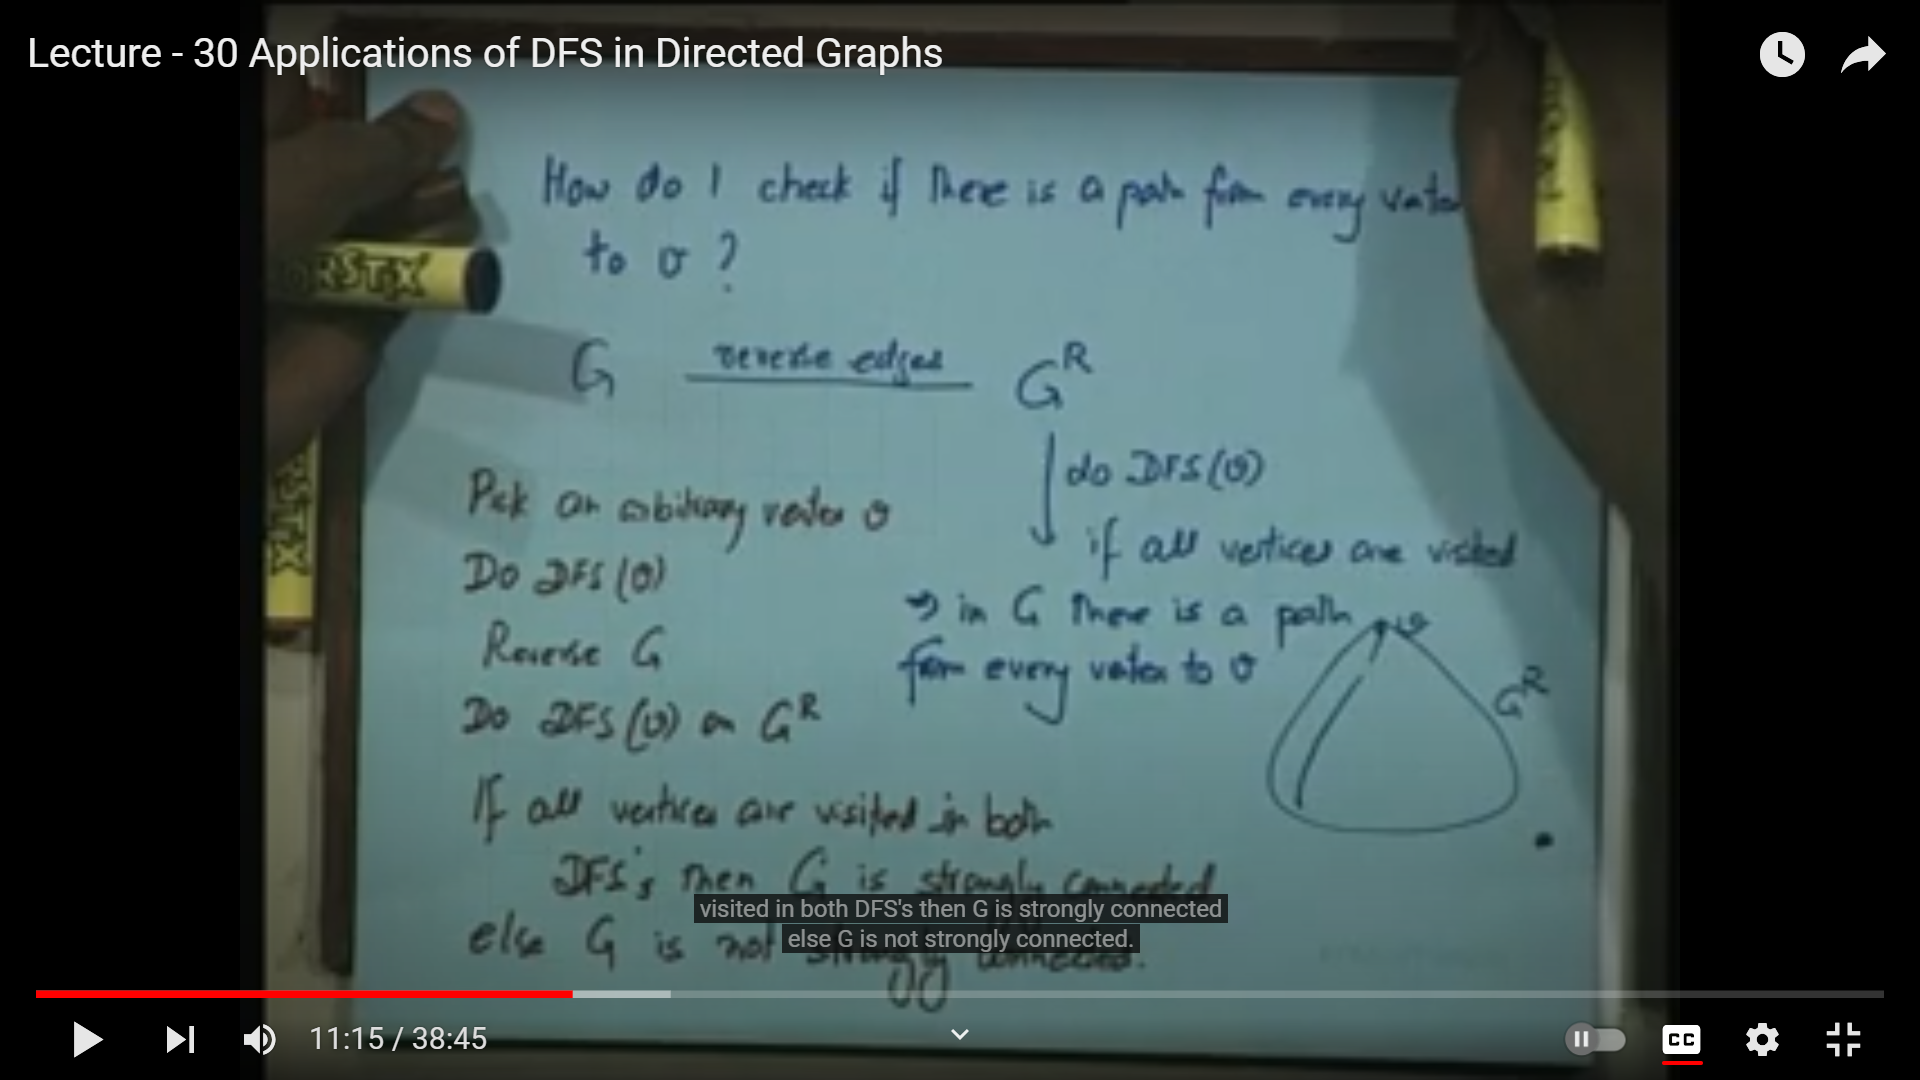 Lecture - 30 Applications of DFS in Directed Graphs
How do I check if there is a path from every vertex
to v ?
G reverse edges G^R
do DFS(v)
if all vertices are visited
⇒ in G there is a path
from every vertex to v
v
G^R
Pick an arbitrary vertex v
Do DFS(v)
Reverse G
Do DFS(v) on G^R
If all vertices are visited in both
DFS's then G is strongly connected
else G is not strongly connected.
visited in both DFS's then G is strongly connected
else G is not strongly connected.
RSTX
STX
11:15 / 38:45
CC